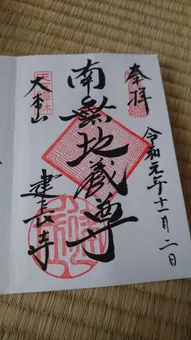 奉拝
令和元年十一月二日
南無地蔵尊
大本山
建長寺